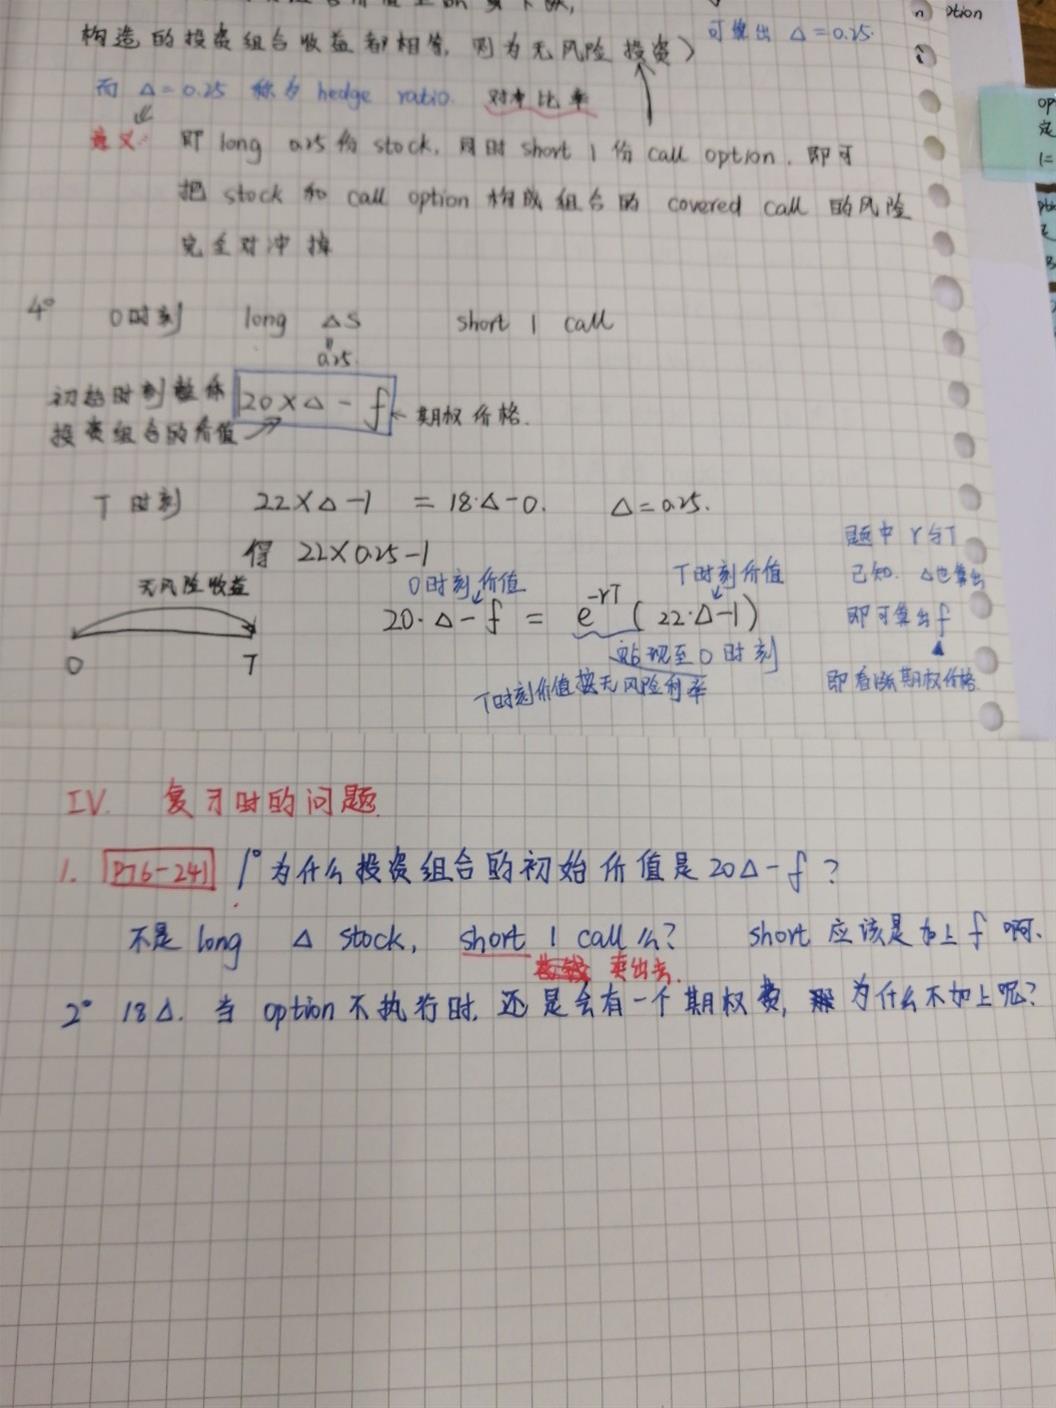 构造的投资组合收益都相等，则为无风险投资）
可算出 Δ=0.25.
而 Δ=0.25 称为 hedge ratio. 对冲比率
意义: 即 long 0.25份 stock, 同时 short 1份 call option, 即可
把 stock 和 call option 构成组合的 covered call 的风险
完全对冲掉
4° 0时刻 long ΔS short 1 call
0.25
初始时刻整体
投资组合的价值
20×Δ-f
期权价格.
T时刻 22×Δ-1 = 18·Δ-0. Δ=0.25.
得 22×0.25-1
无风险收益
0 T
0时刻价值 T时刻价值
20·Δ-f = e^-rT (22·Δ-1)
贴现至0时刻
T时刻价值按无风险利率
题中 r与T
已知. Δ也算出
即可算出f
即看涨期权价格
IV. 复习时的问题.
1. P76-241 1° 为什么投资组合的初始价值是20Δ-f?
不是 long Δ stock, short 1 call 么? short 应该是加上 f 啊.
卖出去.
2° 18Δ. 当 option 不执行时, 还是会有一个期权费, 为什么不加上呢?
ption